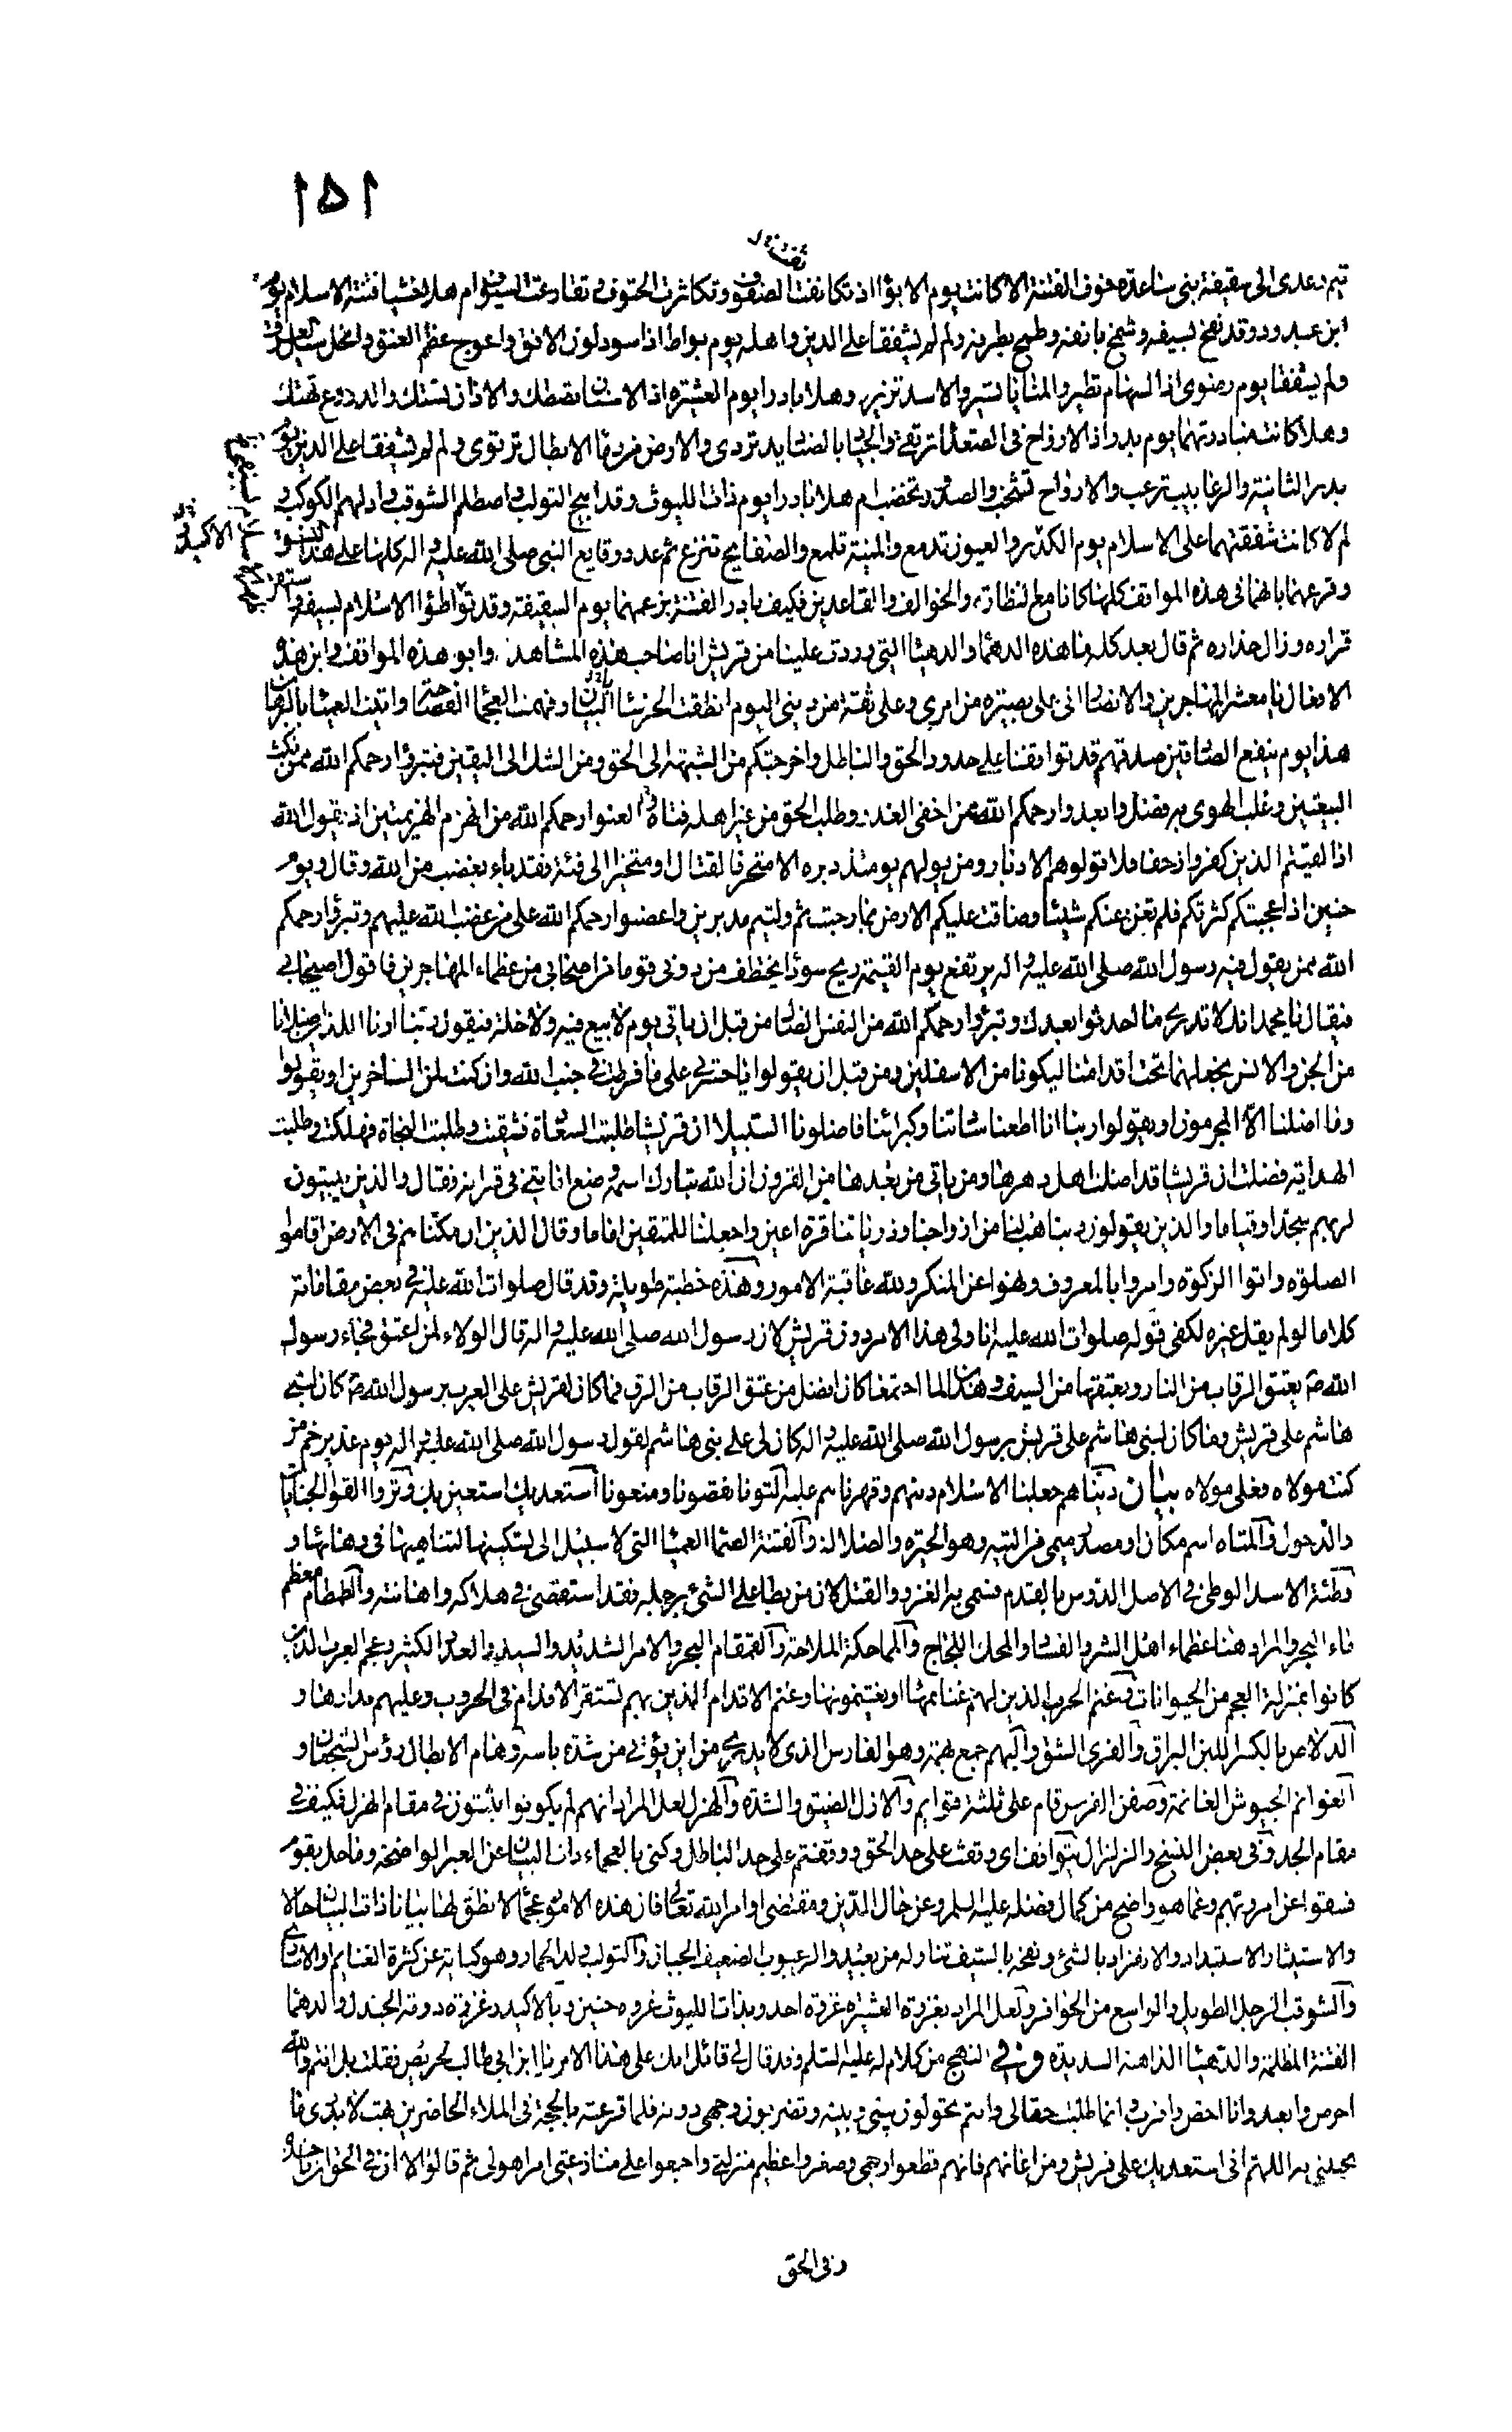 ١٥١
تيم وعدى الى سقيفة بنى ساعدة خوف الفتنة الا كانت يوم الابواء اذ تكاثفت الصفوف وتكاثرت الحتوف وتقارعت السيوف ام هلا خشيا فتنة الاسلام يوم
ابن عبد ود وقد نفخ بسيفه وشمخ بانفه وطمح بطرفه ولم لم يشفقا على الدين واهله يوم بواط اذ اسود لون الافق واعوج عظم العنق وانحل سيل
ولم يشفقا يوم رضوى اذ السهام تطير والمنايا تسير والاسد تزئر وهلا بادرا يوم العشيرة اذ الاسنان تصطك والاذان تستك والدروع تهتك
وهلا كانت مبادرتهما يوم بدر اذ الارواح فى الصعداء ترتقى والجياد بالصناديد تردى والارض من دماء الابطال ترتوى ولم لم يشفقا على الدين يوم
بدر الثانية والرعابيب ترعب والاوداج تشخب والصدور تخضب ام هلا بادرا يوم ذات الليوث وقد ابيح التولب واصطلم الشوقب وادلهم الكوكب
ولم لا كانت شفقتهما على الاسلام يوم الكدر والعيون تدمع والمنية تلمع والصفايح تنزع ثم عدد وقايع النبى صلى الله عليه واله كلها على هذا
وقرعهما بانهما فى هذه المواقف كلها كانا مع النظارة والخوالف والقاعدين فكيف بادرا الفتنة بزعمهما يوم السقيفة وقد توطأ الاسلام بسيفه
قراره وزال حذاره ثم قال بعد كلها هذه الدهماء والدهياء التى وردت علينا من قريش انا صاحب هذه المشاهد وابو هذه المواقف وابن هذه
الافعال يا معشر المهاجرين والانصار انى على بصيرة من امرى وعلى ثقة من دينى اليوم انطقت الخرساء البيان وفهمت العجماء الفصاحة واتيت العمياء بالبرهان
هذا يوم ينفع الصادقين صدقهم قد توافقنا على حدود الحق والباطل واخرجتكم من الشبهة الى الحق ومن الشك الى اليقين فتبرؤا رحمكم الله ممن نكث
البيعتين وغلب الهوى به فضل وابعدوا رحمكم الله ممن اخفى الغدر وطلب الحق من غير اهله فتاه والعنوا رحمكم الله من انهزم الهزيمتين اذ يقول الله
اذا لقيتم الذين كفروا زحفا فلا تولوهم الادبار ومن يولهم يومئذ دبره الا متحرفا لقتال او متحيزا الى فئة فقد باء بغضب من الله وقال ويوم
حنين اذ اعجبتكم كثرتكم فلم تغن عنكم شيئا وضاقت عليكم الارض بما رحبت ثم وليتم مدبرين واغضبوا رحمكم الله على من غضب الله عليهم وتبرؤا رحمكم
الله ممن يقول فيه رسول الله صلى الله عليه واله يرتفع يوم القيمة ريح سوداء يخطف من دونى قوما من اصحابى من عظماء المهاجرين فاقول اصيحابى
فيقال يا محمد انك لا تدرى ما احدثوا بعدك وتبرؤا رحمكم الله من النفس الضال من قبل ان ياتى يوم لا بيع فيه ولا خلة فيقول ربنا ارنا اللذين اضلانا
من الجن والانس نجعلهما تحت اقدامنا ليكونا من الاسفلين ومن قبل ان يقولوا يا حسرتى على ما فرطت فى جنب الله وان كنت لمن الساخرين او يقولوا
وما اضلنا الا المجرمون او يقولوا ربنا انا اطعنا ساداتنا وكبرائنا فاضلونا السبيلا ان قريشا طلبت السعادة فشقيت وطلبت النجاة فهلكت وطلبت
الهداية فضلت ان قريشا قد اضلت اهل دهرها ومن ياتى من بعدها من القرون ان الله تبارك اسمه وضع امامتى فى قرانه فقال والذين يبيتون
لربهم سجدا وقياما والذين يقولون ربنا هب لنا من ازواجنا وذرياتنا قرة اعين واجعلنا للمتقين اماما وقال الذين ان مكناهم فى الارض اقاموا
الصلوة واتوا الزكوة وامروا بالمعروف ونهوا عن المنكر ولله عاقبة الامور وهذه خطبة طويلة وقد قال صلوات الله عليه فى بعض مقاماته
كلاما لو لم يقل غيره لكفى قوله صلوات الله عليه انا ولى هذا الامر دون قريش لان رسول الله صلى الله عليه واله قال الولاء لمن اعتق فجاء رسول
الله ص بعتق الرقاب من النار وبعتقها من السيف وهذان لما اجتمعا كانا افضل من عتق الرقاب من الرق فما كان لقريش على العرب برسول الله ص كان لبنى
هاشم على قريش وما كان لبنى هاشم على قريش برسول الله صلى الله عليه واله كان لى على بنى هاشم لقول رسول الله صلى الله عليه واله يوم غدير خم من
كنت مولاه فعلى مولاه بيان دناهم جعلنا الاسلام دينهم وقهرناهم عليه اكتونا نقصونا ومنعونا استعديك استعين بك
والدحول والمتاه اسم مكان او مصدر ميمى من التيه وهو الحيرة والضلالة والفتنة الصماء العمياء التى لا سبيل الى تسكينها لتناهيها فى دهائها و
وطئة الاسد الوطى فى الاصل الدوس بالقدم فسمى به الغزو والقتل لان من يطأ على الشئ برجله فقد استقصى فى هلاكه واهانته والطمطام معظم
ماء البحر والمراد هنا عظماء اهل الشر والفساد والمحك اللجاج والمماحكة الملاحة والقمقام البحر والامر الشديد والسيد والعدد الكثير وعجم العرب الذين
كانوا بمنزلة العجم من الحيوانات وغنم الحرب الذين لهم غنائمها او يغتنمونها وغنم الاقدام الذين بهم تستقر الاقدام فى الحروب وعليهم مدارها و
الدلاص بالكسر اللين البراق والفرى الشق والبهم جمع بهمة وهو الفارس الذى لا يدرى من اين يؤتى من شدة باسه وهام الابطال رؤس الشجعان و
الجيوش الغانمة وصفن الفرس قام على ثلثة قوايم والازل الضيق والشدة والهزل لعل المراد انهم لم يكونوا يثبتون فى مقام الهزل فكيف فى
مقام الجد وفى بعض النسخ والزلزال تواقفنا اى وقفت على حد الحق ووقفتم على حد الباطل وكنى بالعجماء ذات البيان عن العبر الواضحة وما حل بقوم
فسقوا عن امر ربهم وعما هو واضح من كمال فضله عليه السلم وعن حال الدين ومقتضى اوامر الله تعالى فان هذه الامور عجماء لا نطق لها بيانا ذات البيان حالا
والاستيثار الاستبداد والانفراد بالشئ ونفخه بالسيف تناوله من بعيد والرعبوب الضعيف الجبان والتولب ولد الحمار وهو كناية عن كثرة الغنايم
والشوقب الرجل الطويل والواسع من الحوافر ولعل المراد بغزوة العشيرة غزوة احد وبذات الليوث غزوة حنين وبالاكيدر غزوة دومة الجندل والدهماء
الفتنة المظلمة والدهياء الداهية الشديدة وفى النهج من كلام له عليه السلم وقد قال لى قائل انك على هذا الامر يا ابن ابى طالب لحريص فقلت بل انتم والله
احرص وابعد وانا اخص واقرب وانما طلبت حقا لى وانتم تحولون بينى وبينه وتضربون وجهى دونه فلما قرعته بالحجة فى الملاء الحاضرين بهت لا يدرى ما
يجيبنى به اللهم انى استعديك على قريش ومن اعانهم فانهم قطعوا رحمى وصغروا عظيم منزلتى واجمعوا على منازعتى امرا هو لى ثم قالوا الا ان فى الحق ان تاخذه
وفى الحق